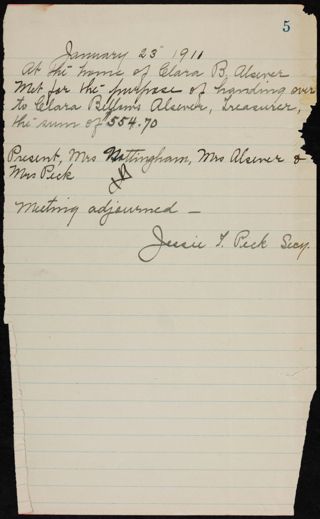 5
January 25 1911
At the home of Clara B. Alsever
Met for the purpose of handing over
to Clara Bellows Alsever, Treasurer,
the sum of $554.70
Present, Mrs Nottingham, Mrs Alsever &
Mrs Peck
Meeting adjourned —
Jessie T. Peck Secy.